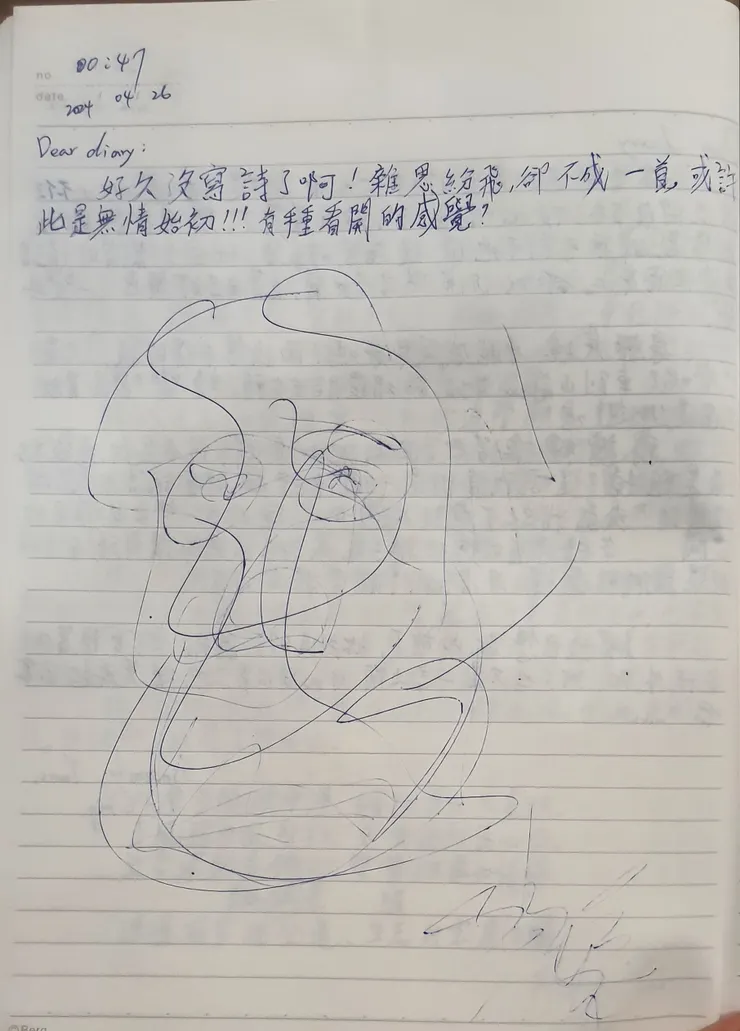 no 00:47
date 2024 04 26
Dear diary:
好久沒寫詩了啊！雜思紛飛,卻不成一首,或許
此是無情始初!!! 有種看開的感覺?